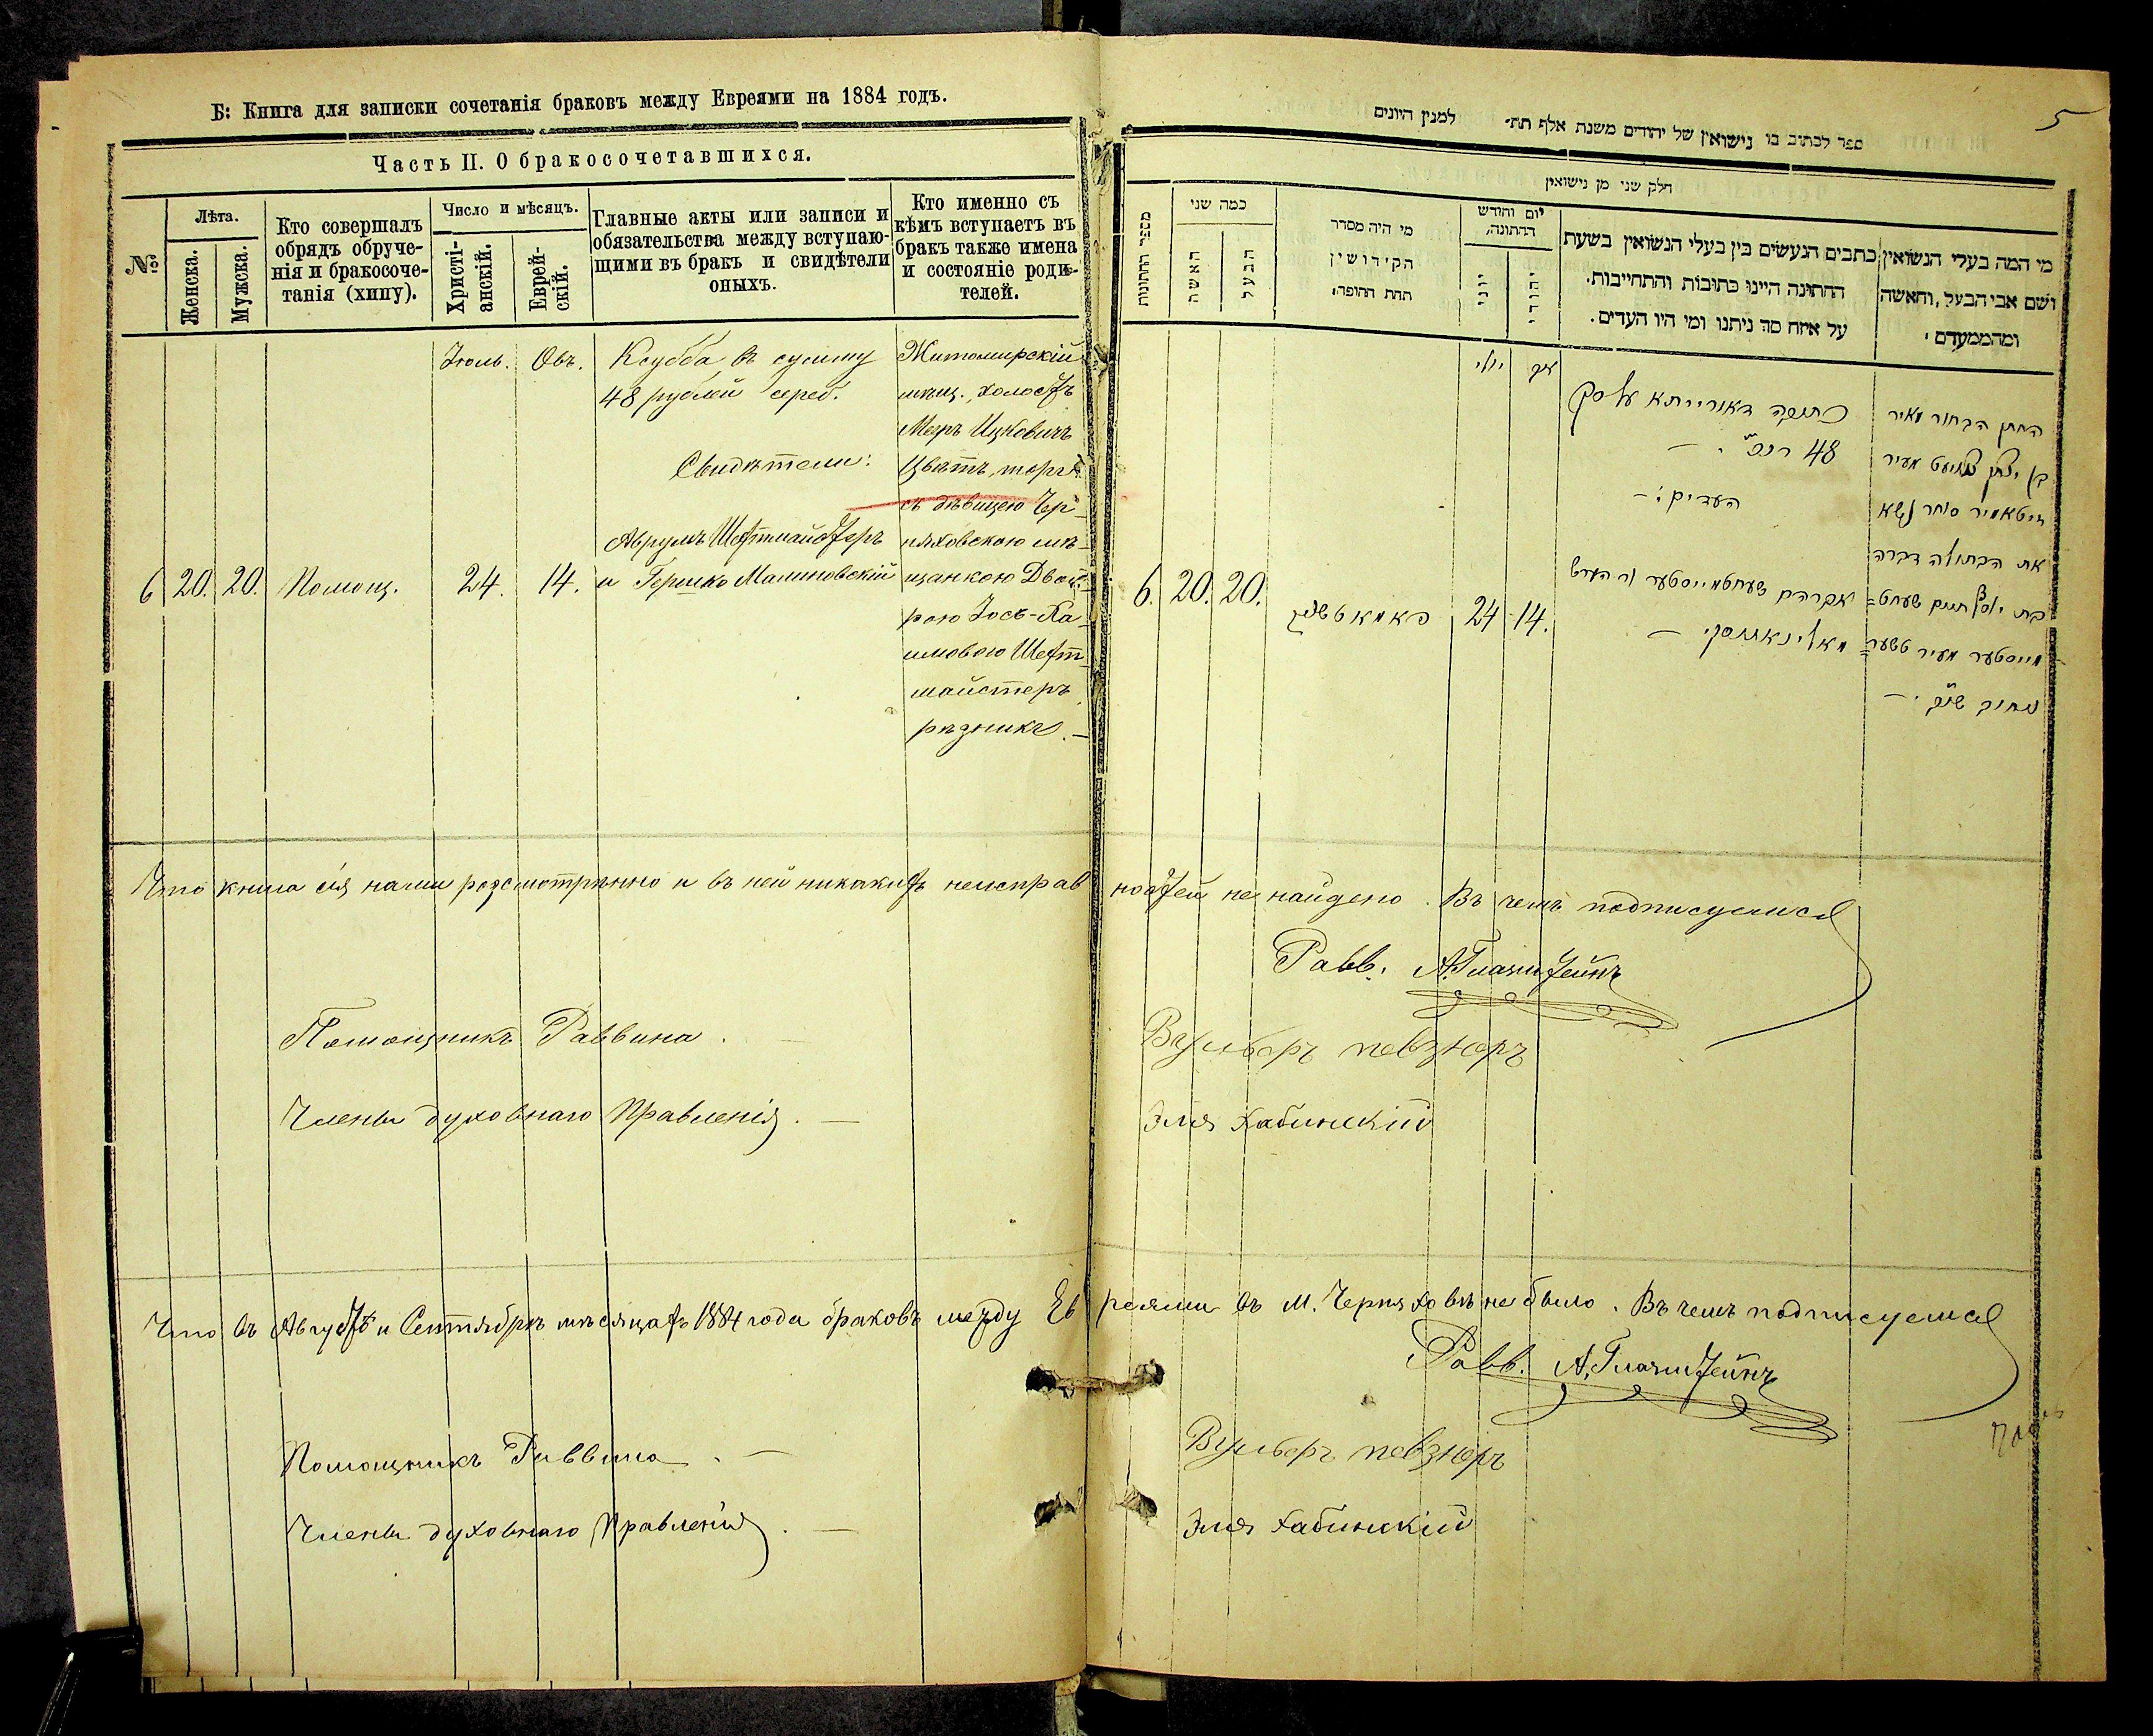 Б: Книга для записки сочетанія браковъ между Евреями на 1884 годъ.
Часть II. О бракосочетавшихся.
№
Лѣта.
Женска.
Мужска.
Кто совершалъ
обрядъ обруче-
нія и бракосоче-
танія (хипу).
Число и мѣсяцъ.
Христі-
анскій.
Еврей-
скій.
Главные акты или записи и
обязательства между вступаю-
щими въ бракъ и свидѣтели
оныхъ.
Кто именно съ
кѣмъ вступаетъ въ
бракъ также имена
и состояніе роди-
телей.
Іюль.
Овъ.
Ксубба въ сумму
48 рублей сереб.
Свидѣтели:
Аврумъ Шехтмайстеръ
и Гершко Малиновскій
Житомирскій
мѣщ., холостъ
Мееръ Ицковичъ
Цвѣтъ, торг.
съ дѣвицею Чер-
няховскою мѣ-
щанкою Двой-
рою Іось-Ха-
имовою Шехт-
майстеръ
рѣзника. –
6
20.
20.
Помощ.
24.
14.
ספר לכתוב בו נישואין של יהודים משנת אלף תת׳ למנין היונים
5
חלק שני מן נישואין
מספר החתונות
כמה שני
האשה
הבעל
מי היה מסדר
הקידושין
תחת החופה׳
יום וחודש
החתונה׳
יוני
יהודי
כתבים הנעשים בין בעלי הנשואין בשעת
החתונה היינו כתובות והתחייבות.
על איזה סך ניתנו ומי היו העדים.
מי המה בעלי הנשואין
ושם אבי הבעל, והאשה
ומהמעמדם׳
יולי
אב
כתובה דאורייתא על סך
48 רוכ״ס. –
העדים: –
אברהם שעחטמייסטער
מאלינאווסקי –
החתן הבחור מאיר
בן יצחק צוועט מעיר
זיטאמיר סוחר נשא
את הבתולה דברה
בת יוסף חיים שעחט=
מייסטער מעיר טשער=
ניחוב שו״ב. –
6.
20.
20.
פאמאטשניק
24
14.
Что книга сія нами розсмотрѣнно и въ ней никакихъ неисправностей не найдено. Въ чемъ подписуемся
Равв.
Помощникъ Раввина. –
Вульфъ Певзнеръ
Члены духовнаго Правленія. –
Эля Хабинскій
Что въ Августѣ и Сентябрѣ мѣсяцахъ 1884 года браковъ между Евреями въ М. Черняховѣ не было. Въ чемъ подписуемся
Равв.
Помощникъ Раввина. –
Вульфъ Певзнеръ
Члены духовнаго Правленія. –
Эля Хабинскій